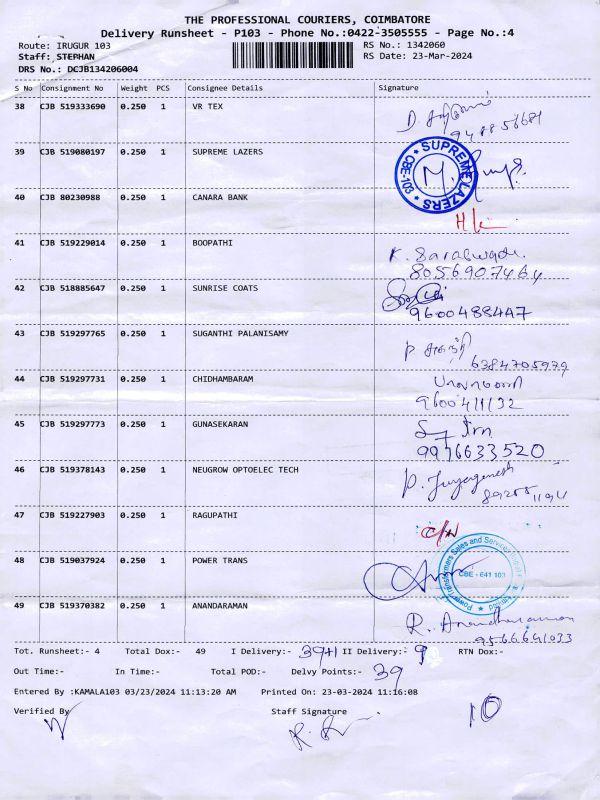 THE PROFESSIONAL COURIERS, COIMBATORE
Delivery Runsheet - P103 - Phone No.:0422-3505555 - Page No.:4
Route: IRUGUR 103 RS No.: 1342060
Staff: STEPHAN RS Date: 23-Mar-2024
DRS No.: DCJB134206004
S No Consignment No Weight PCS Consignee Details Signature
38 CJB 519333690 0.250 1 VR TEX
39 CJB 519080197 0.250 1 SUPREME LAZERS
SUPREME LAZERS CBE-103
40 CJB 80230988 0.250 1 CANARA BANK
41 CJB 519229014 0.250 1 BOOPATHI
8056907464
42 CJB 518885647 0.250 1 SUNRISE COATS
9600488447
43 CJB 519297765 0.250 1 SUGANTHI PALANISAMY
6384705979
44 CJB 519297731 0.250 1 CHIDHAMBARAM
9600411132
45 CJB 519297773 0.250 1 GUNASEKARAN
9976633520
46 CJB 519378143 0.250 1 NEUGROW OPTOELEC TECH
47 CJB 519227903 0.250 1 RAGUPATHI
C/N
48 CJB 519037924 0.250 1 POWER TRANS
CBE - 641 103
49 CJB 519370382 0.250 1 ANANDARAMAN
R. Anandharaman
9566641033
Tot. Runsheet:- 4 Total Dox:- 49 I Delivery:- 39+1 II Delivery:- 9 RTN Dox:-
Out Time:- In Time:- Total POD:- Delvy Points:- 39
Entered By :KAMALA103 03/23/2024 11:13:20 AM Printed On: 23-03-2024 11:16:08
Verified By Staff Signature 10